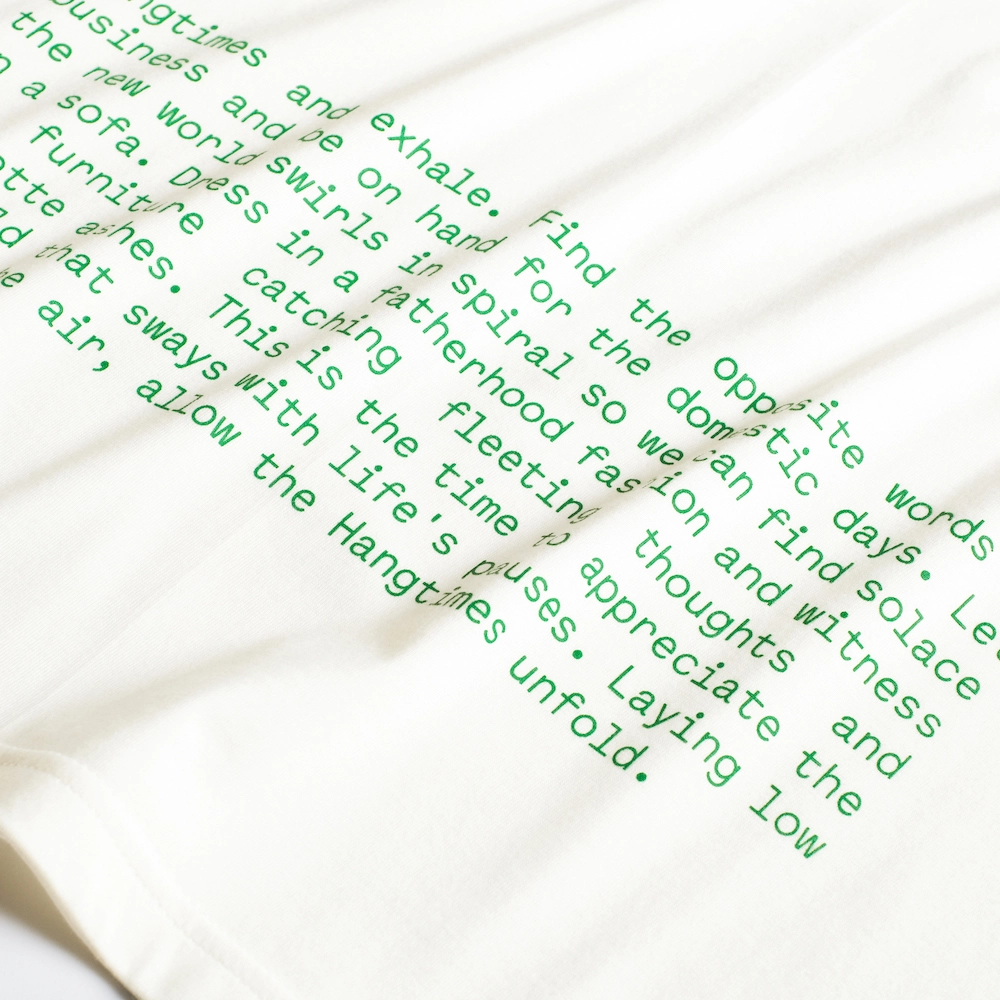 ngtimes and exhale. Find the opposite words
business and be on hand for the domestic days. Let
the new world swirls in spiral so we can find solace
n a sofa. Dress in a fatherhood fashion and witness
furniture catching fleeting thoughts and
otte ashes. This is the time to appreciate the
ld that sways with life's pauses. Laying low
he air, allow the Hangtimes unfold.